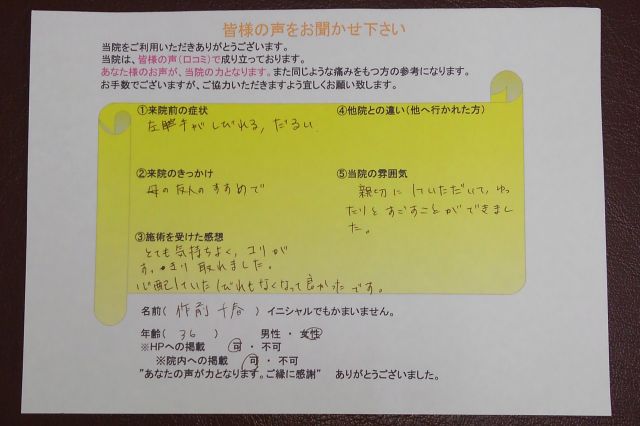 皆様の声をお聞かせ下さい
当院をご利用いただきありがとうございます。
当院は、皆様の声(口コミ)で成り立っております。
あなた様のお声が、当院の力となります。また同じような痛みをもつ方の参考になります。
お手数でございますが、ご協力いただきますよう宜しくお願い致します。
①来院前の症状
左腕手がしびれる,だるい
②来院のきっかけ
母の友人のすすめで
③施術を受けた感想
とても気持ちよく,コリが
すっきり取れました。
心配していたしびれもなくなって良かったです。
④他院との違い(他へ行かれた方)
⑤当院の雰囲気
親切にしていただいて,ゆっ
たりとすごすことができまし
た。
名前( 作前 千春 )イニシャルでもかまいません。
年齢( 36 ) 男性 ・ 女性
※HPへの掲載 可 ・ 不可
※院内への掲載 可 ・ 不可
"あなたの声が力となります。ご縁に感謝" ありがとうございました。